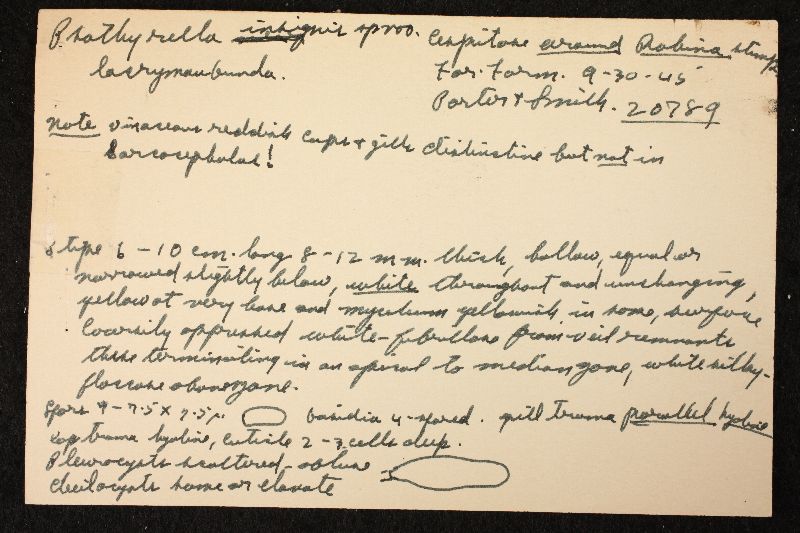 Psathyrella insignis sproo.
lacrymaubunda.
Cespitose around Robina stumps
For. Farm. 9-30-45
Porter & Smith. 20789
Note vinaceous reddish caps & gills distinctive but not in
Sarcocephalus!
Stipe 6-10 cm. long 8-12 mm. thick, hollow, equal or
narrowed slightly below, white throughout and unchanging,
yellow at very base and mycelium yellowish in some, surface
loosely appressed white-fibrillose from veil remnants
these terminating in an apical to median zone, white silky-
floccose above zone.
Spores 9-7.5 x 3.5µ basidia 4-spored. gill trama parallel hyaline
cap trama hyaline, cuticle 2-3 cells deep.
Pleurocysts scattered - obtuse
cheilocysts same or clavate